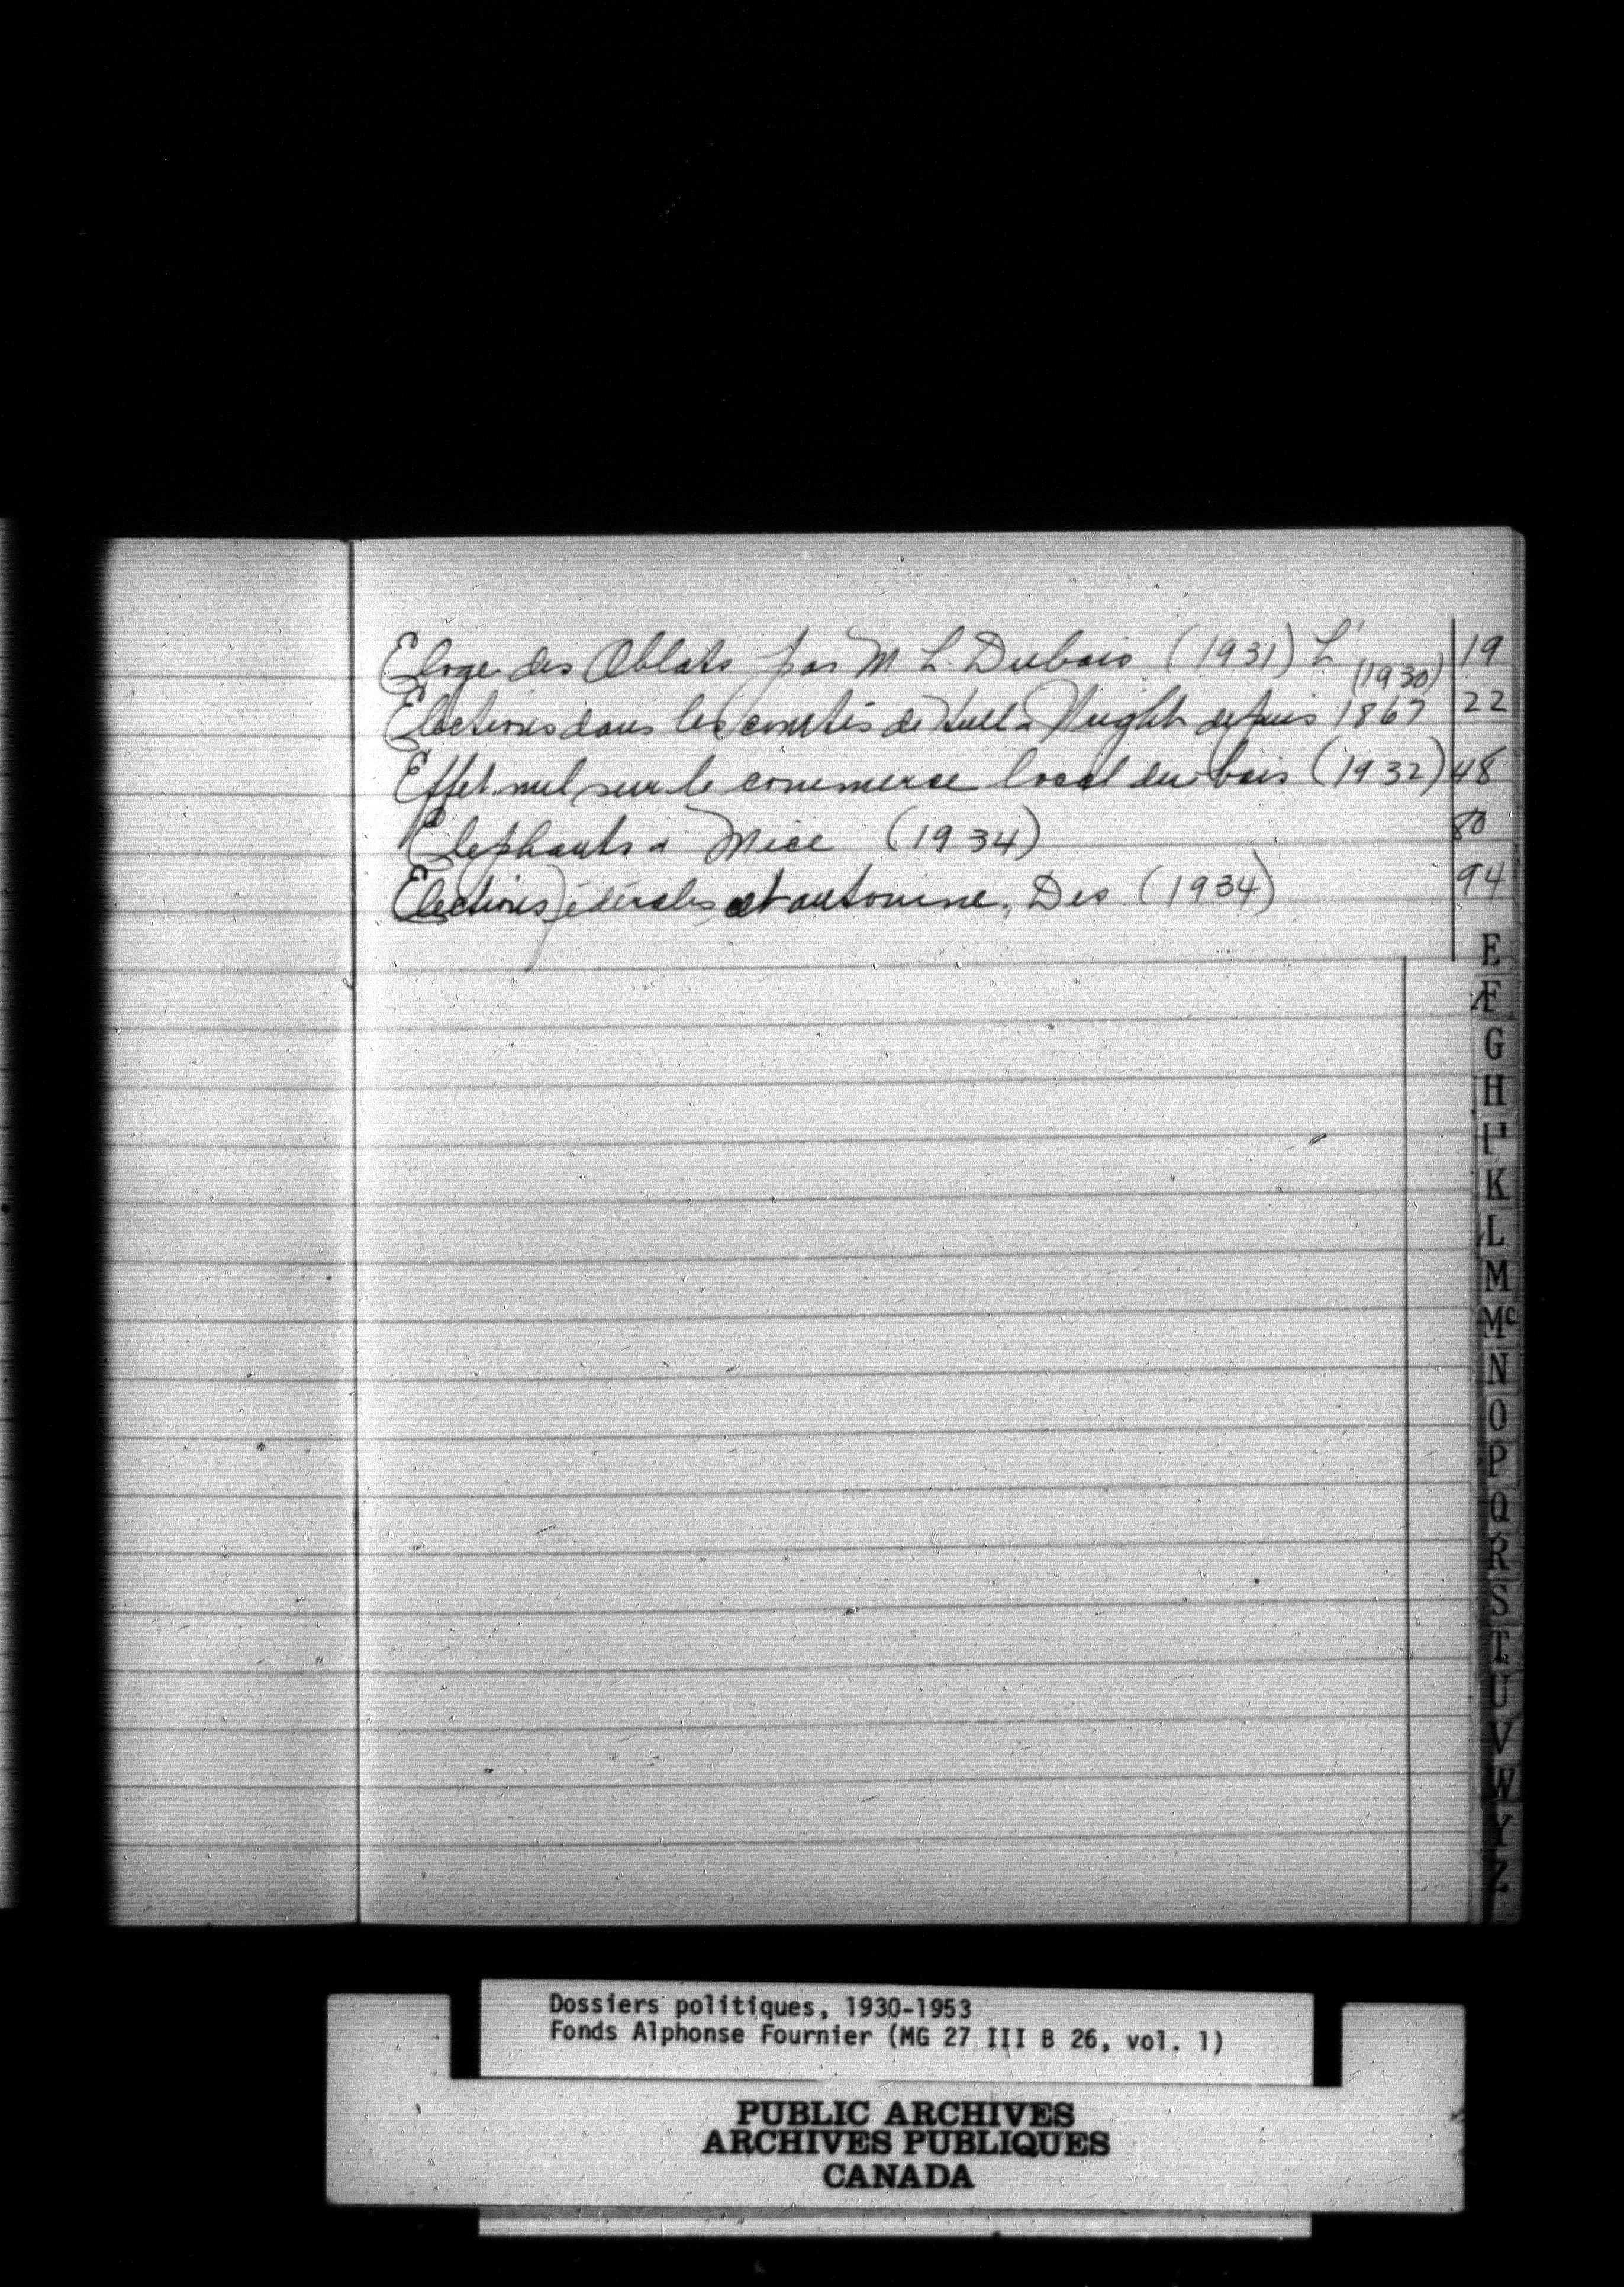 Eloge des Oblats par M L. Dubois (1931) L' 19
Elections dans les comtés de Hull & Wright depuis 1867 (1930) 22
Effet nul sur le commerce local du bois (1932) 48
Elephants & Mice (1934) 80
Elections fédérales cet automne, Des (1934) 94
E
F
G
H
K
L
M
Mc
N
O
P
Q
R
S
T
U
V
W
Y
Z
Dossiers politiques, 1930-1953
Fonds Alphonse Fournier (MG 27 III B 26, vol. 1)
PUBLIC ARCHIVES
ARCHIVES PUBLIQUES
CANADA